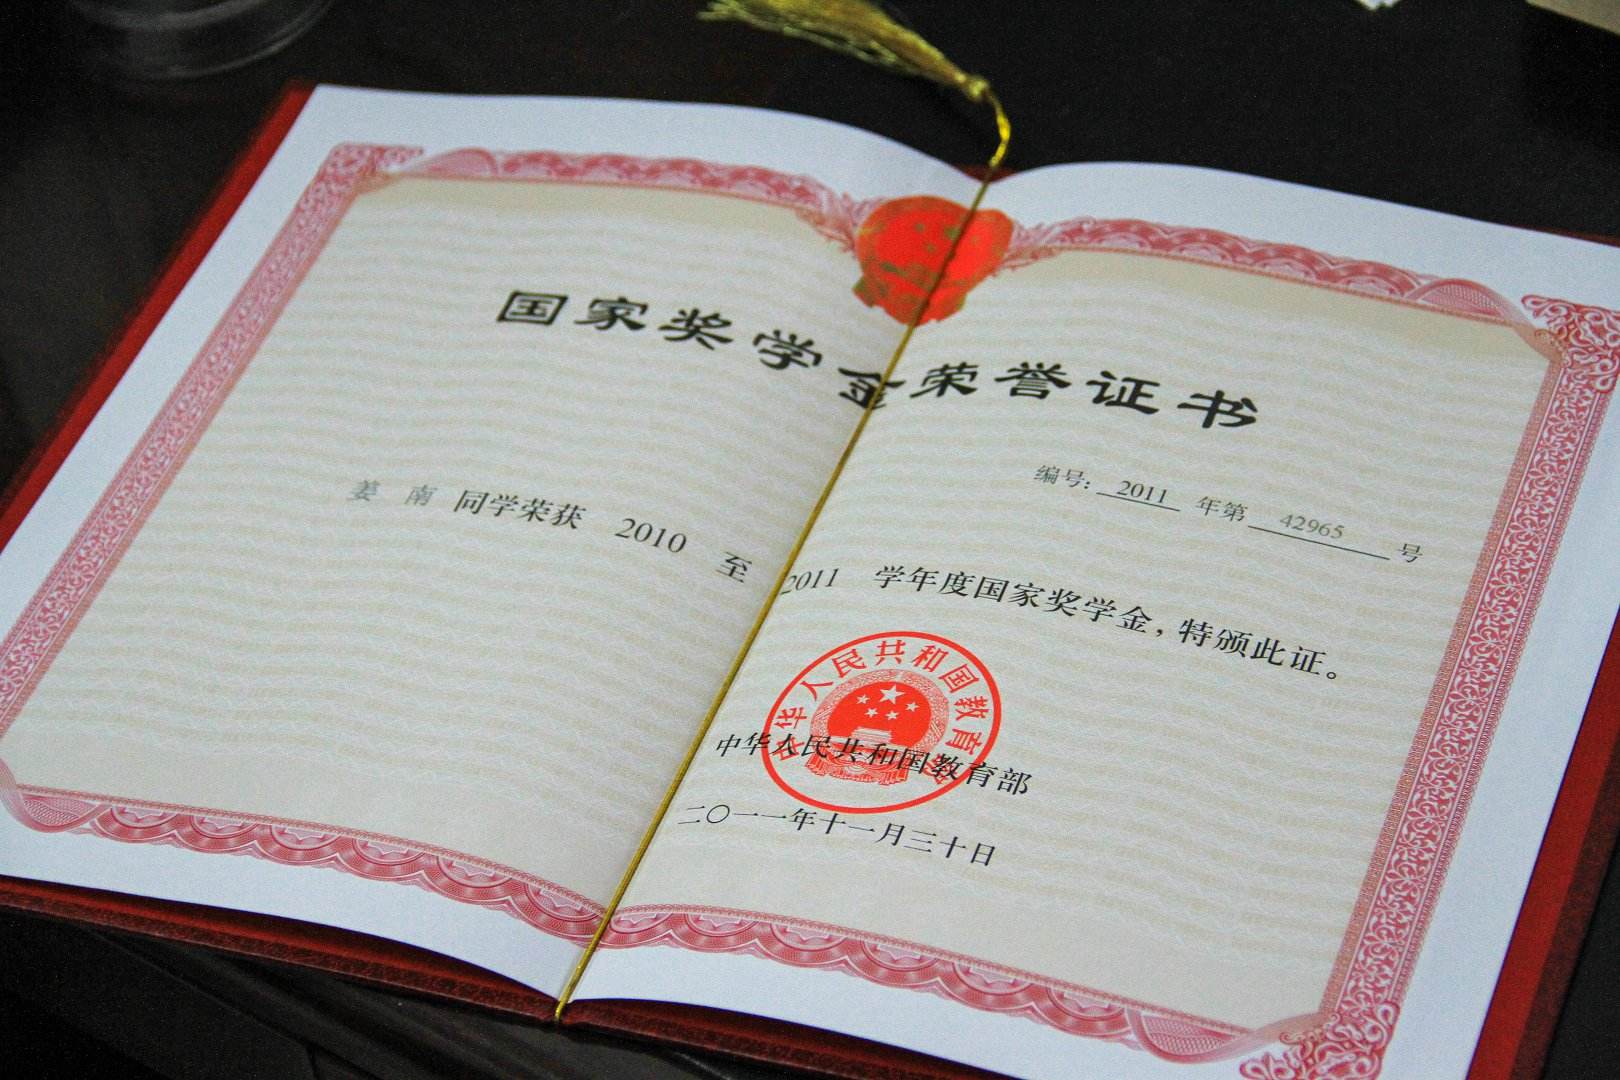 国家奖学金荣誉证书
编号: 2011 年第 42965 号
姜南 同学荣获 2010 至 2011 学年度国家奖学金，特颁此证。
中华人民共和国教育部
中华人民共和国教育部
二〇一一年十一月三十日